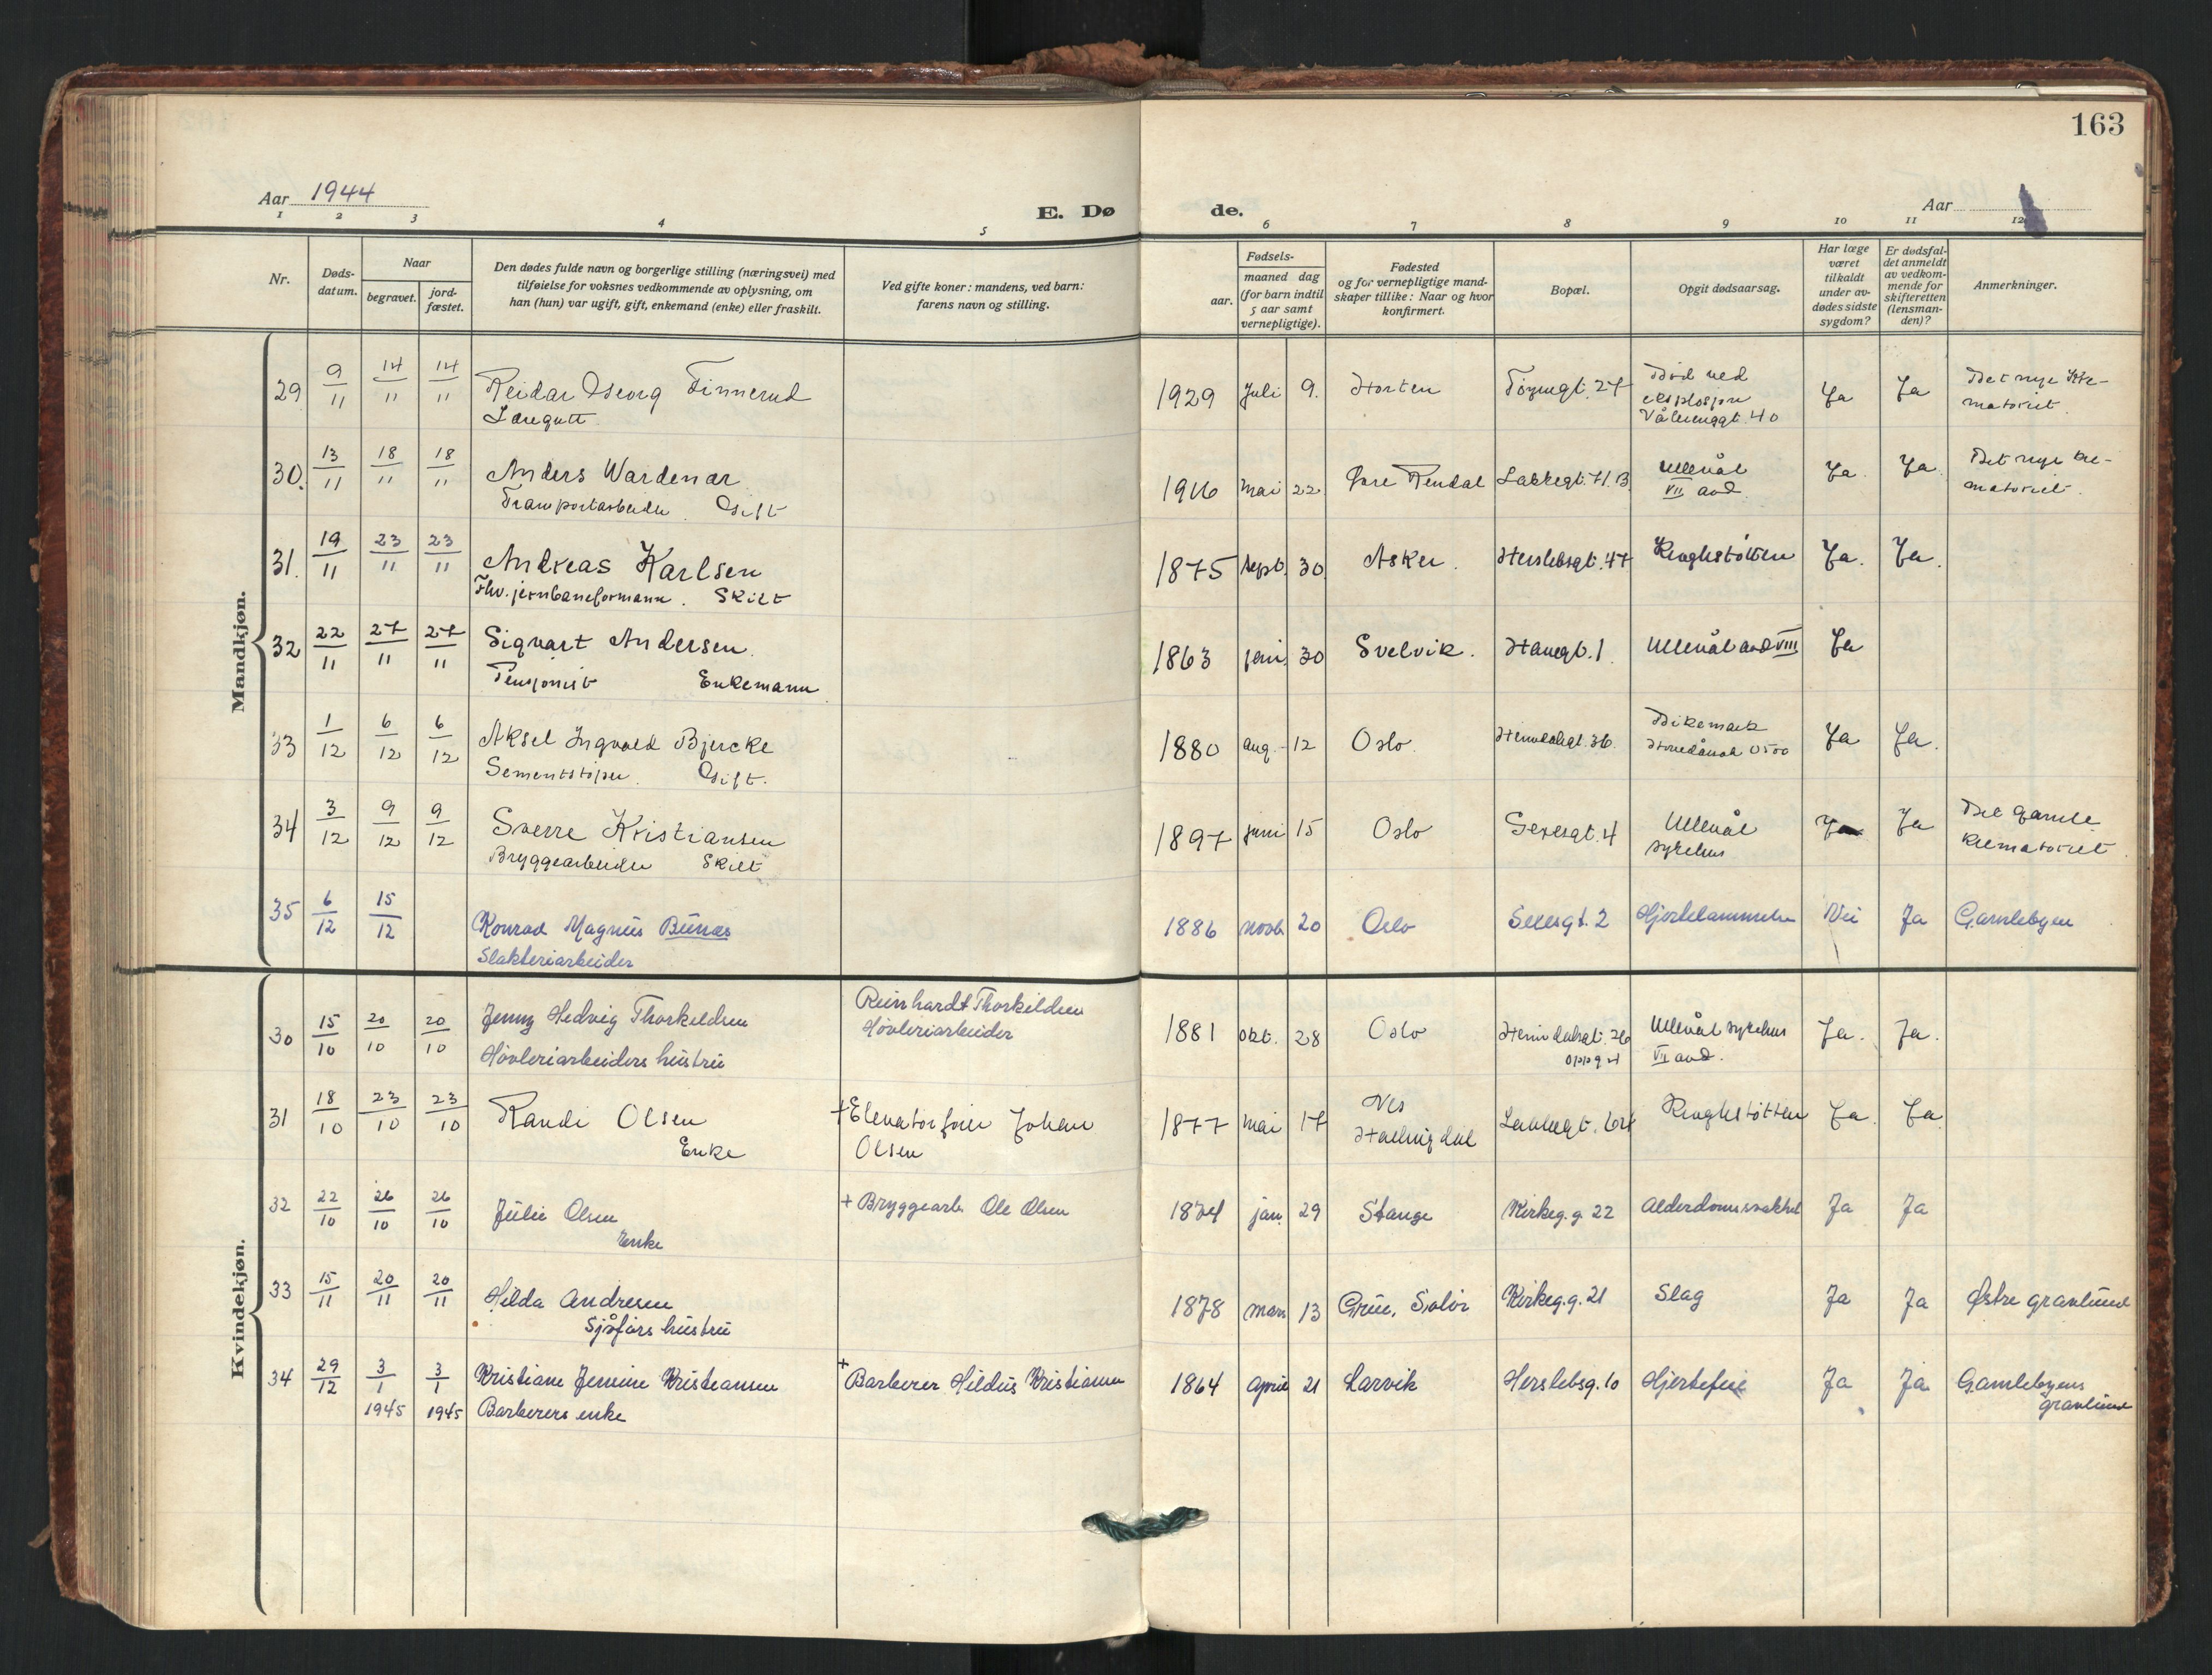 163
Aar 1944
E. Dø de.
Aar
1 2 3 4 5 6 7 8 9 10 11 12
Nr.
Døds-
datum.
Naar
begravet.
jord-
fæstet.
Den dødes fulde navn og borgerlige stilling (næringsvei) med
tilføielse for voksnes vedkommende av oplysning, om
han (hun) var ugift, gift, enkemand (enke) eller fraskilt.
Ved gifte koner: mandens, ved barn:
farens navn og stilling.
Fødsels-
aar.
maaned dag
(for barn indtil
5 aar samt
vernepligtige).
Fødested
og for vernepligtige mand-
skaper tillike: Naar og hvor
konfirmert.
Bopæl.
Opgit dødsaarsag.
Har læge
været
tilkaldt
under av-
dødes sidste
sygdom?
Er dødsfal-
det anmeldt
av vedkom-
mende for
skifteretten
(lensman-
den)?
Anmerkninger.
Mandkjøn.
29 9/11 14/11 14/11 Reidar Georg Finnerud 1929 Juli 9. Horten Tøyengt. 27 Død ved Ja Ja Det nye Kre-
Læregutt eksplosjon matoriet.
Vålerenggt. 40
30. 13/11 18/11 18/11 Anders Wardenær 1916 Mai 22 Øvre Rendal Lakkegt. 71.B. Ullevål Ja. Ja. Det nye kre-
Transportarbeider. Gift VII avd. matoriet.
31. 19/11 23/11 23/11 Andreas Karlsen 1875 Sept. 30. Asker. Herslebsgt. 47 Kroghstøtten Ja. Ja.
Fhv. jernbaneformann. Skilt
32 22/11 27/11 27/11 Sigvart Andersen. 1863 juni 30 Svelvik. Hauegt. 1. Ullevål avd VIII Ja
Pensjonist Enkemann
33 1/12 6/12 6/12 Aksel Ingvald Bjercke 1880 aug. 12 Oslo. Heimdalsgt. 36. Dikemark Ja Ja.
Sementstøper. Gift.
34 3/12 9/12 9/12 Sverre Kristiansen 1897 juni 15 Oslo Sexesgt. 4 Ullevål Ja Ja Det gamle
Bryggearbeider Skilt sykehus krematoriet.
35 6/12 15/12 Konrad Magnus Bunæs 1886 novb. 20 Oslo Sexesgt. 2 Hjertelammelse Nei Ja Gamlebyen
Slakteriarbeider
Kvindekjøn.
30 15/10 20/10 20/10 Jenny Hedvig Thorkildsen Reinhardt Thorkildsen 1881 okt. 28 Oslo Heimdalsgt. 26 Ullevål sykehus Ja. Ja.
Høvleriarbeiders hustru Høvleriarbeider oppg 4 VII avd.
31 18/10 23/10 23/10 Randi Olsen + Elevatorfører Johan 1877 Mai 17 Nes Lakkegt. Kroghstøtten Ja. Ja.
Enke Olsen Hallingdal
32 22/10 26/10 26/10 Julie Olsen + Bryggearb. Ole Olsen 1874 jan. 29 Stange Kirkeg. g. 22 Alderdomssvakhet Ja Ja
Enke
33 15/11 20/11 20/11 Hilda Andresen 1878 mars 13 Grue, Solør Kirkeg. g. 21 Slag Ja Ja Østre gravlund
Sjåførs hustru
34 29/12 3/1 3/1 Kristiane Jensine Kristiansen + Barberer Hildus Kristiansen 1864 April 21 Larvik Herslebsg. 10 Hjertefeil Ja Ja Gamlebyens
1945 1945 Barberers enke gravlund